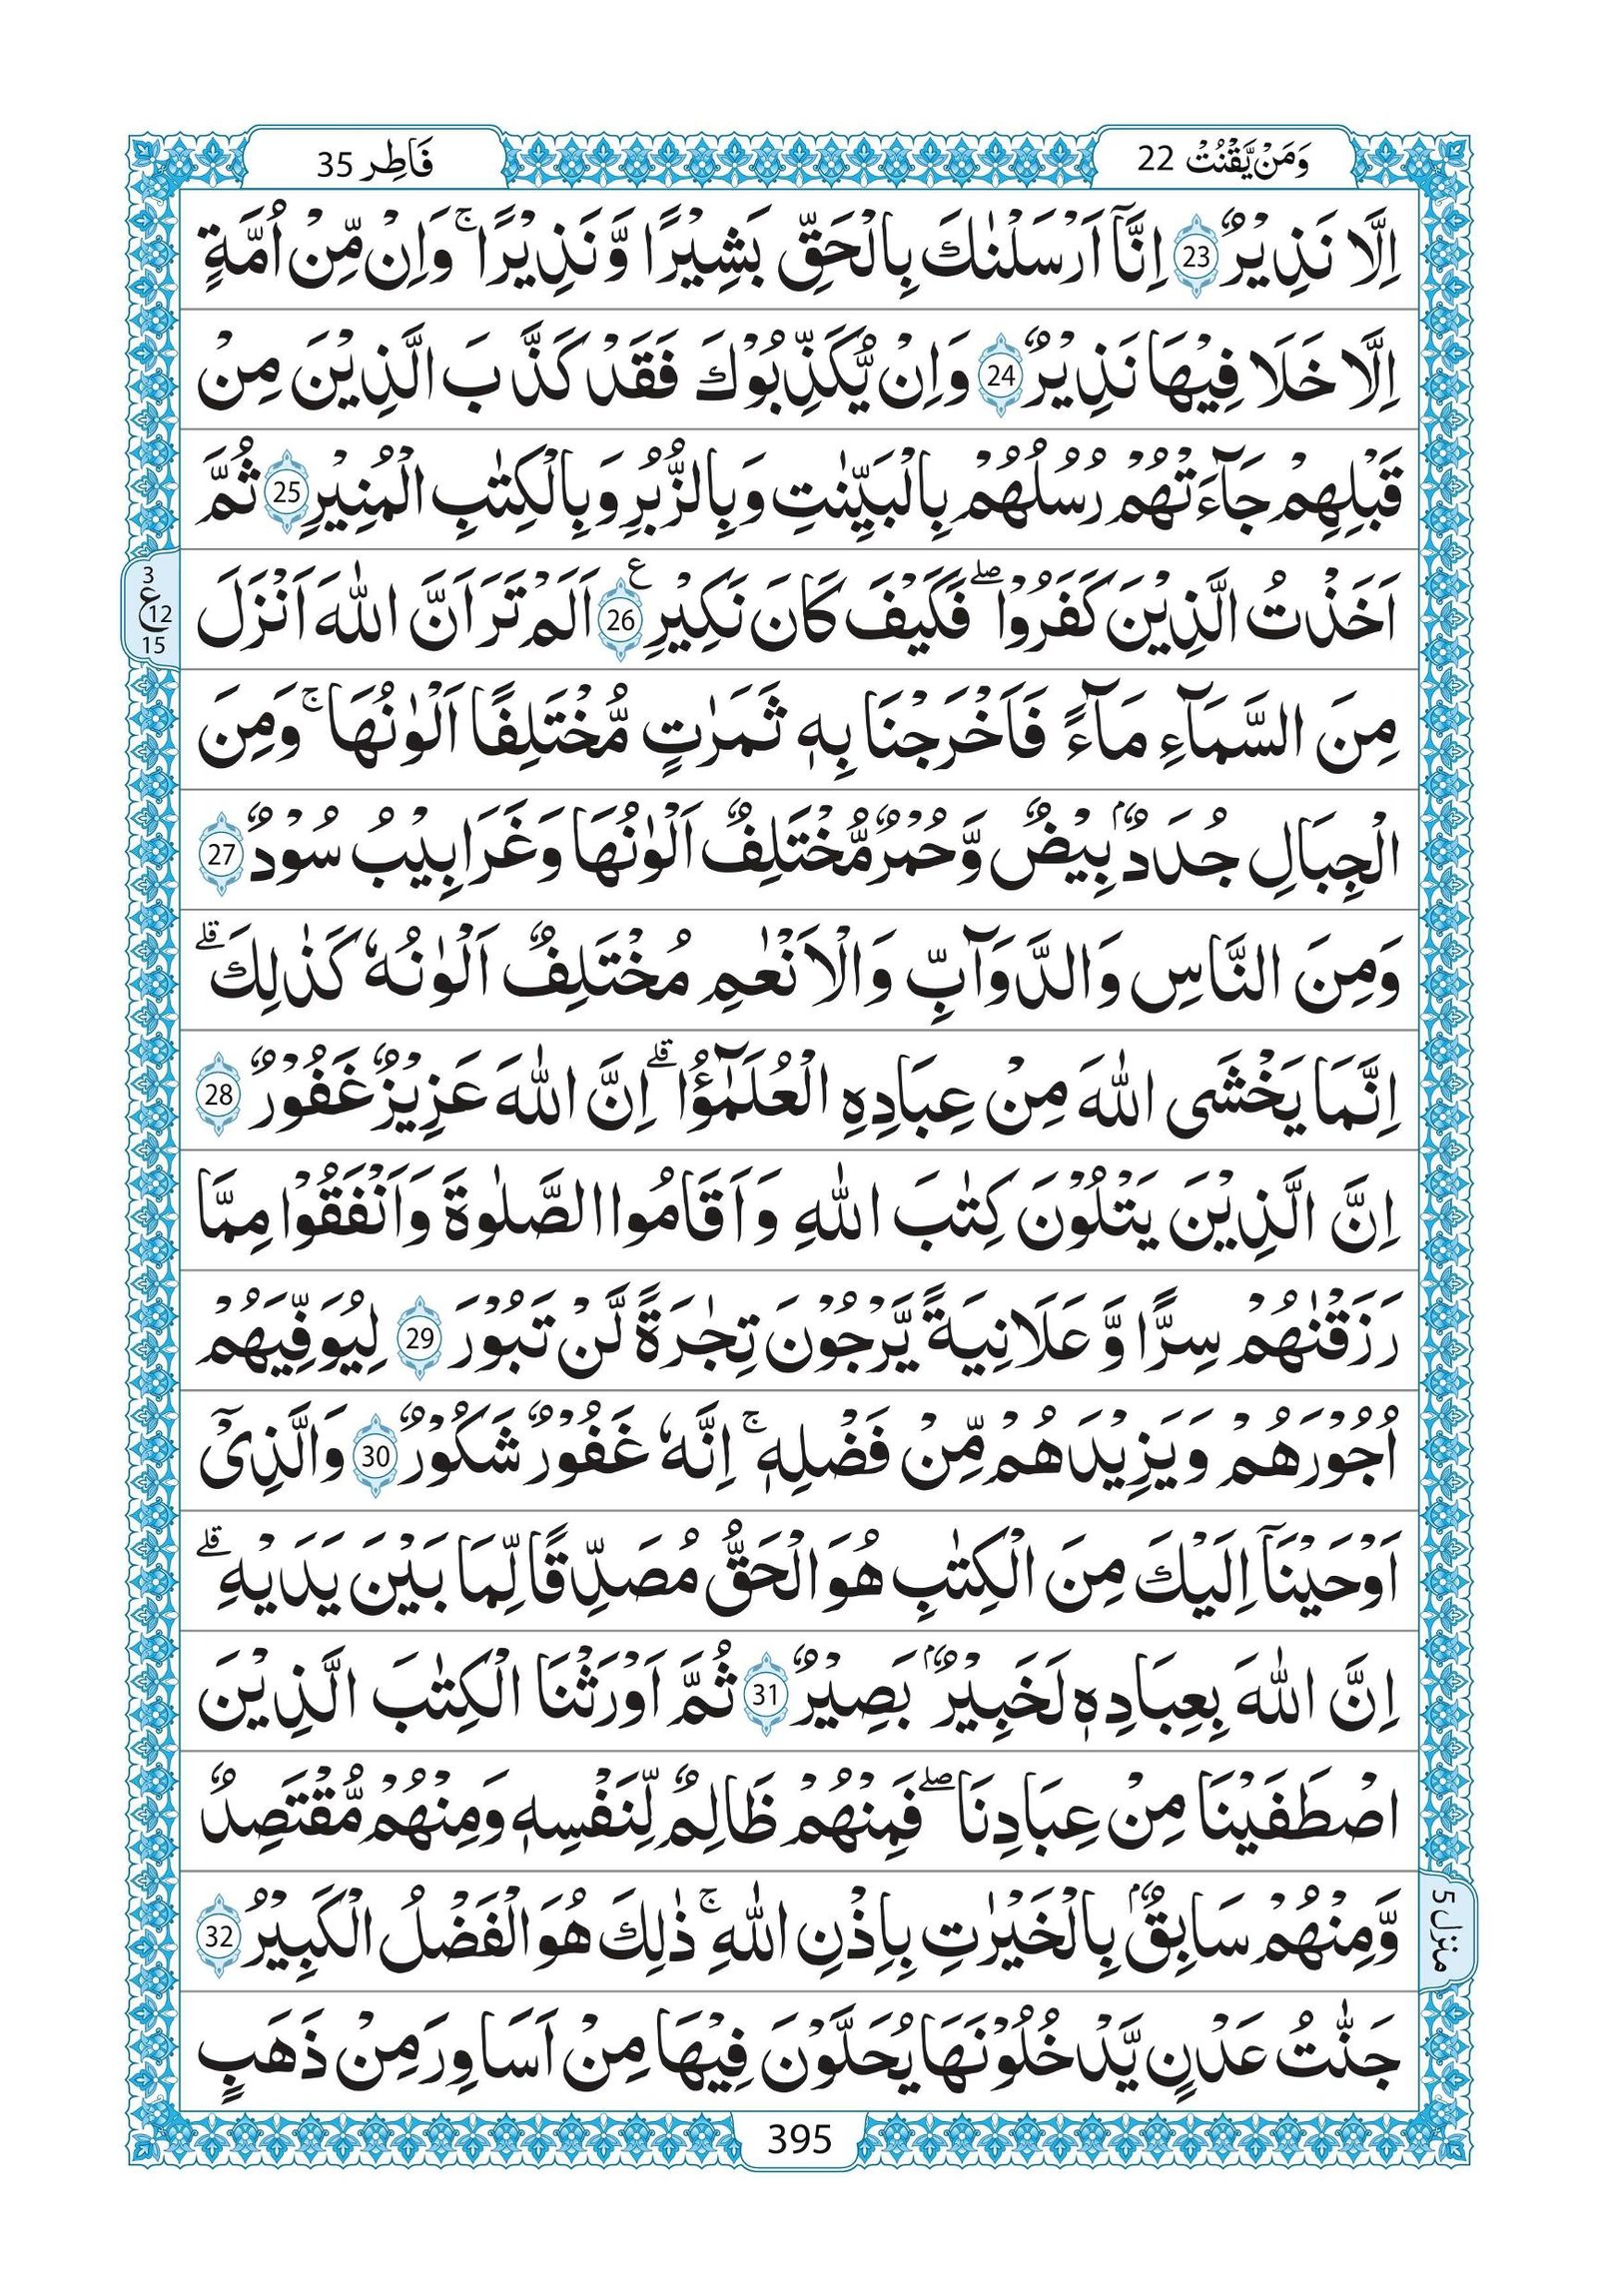 وَمَنْ يَّقْنُتْ 22
فَاطِر 35
اِلَّا نَذِيْرٌ 23 اِنَّاۤ اَرْسَلْنٰكَ بِالْحَقِّ بَشِيْرًا وَّ نَذِيْرًا ۚ وَاِنْ مِّنْ اُمَّةٍ
اِلَّا خَلَا فِيْهَا نَذِيْرٌ 24 وَاِنْ يُّكَذِّبُوْكَ فَقَدْ كَذَّبَ الَّذِيْنَ مِنْ
قَبْلِهِمْ جَآءَتْهُمْ رُسُلُهُمْ بِالْبَيِّنٰتِ وَبِالزُّبُرِ وَبِالْكِتٰبِ الْمُنِيْرِ 25 ثُمَّ
اَخَذْتُ الَّذِيْنَ كَفَرُوْا ۖ فَكَيْفَ كَانَ نَكِيْرِ ع 26 اَلَمْ تَرَ اَنَّ اللّٰهَ اَنْزَلَ
3
ع 12
15
مِنَ السَّمَآءِ مَآءً فَاَخْرَجْنَا بِهٖ ثَمَرٰتٍ مُّخْتَلِفًا اَلْوٰنُهَا ۚ وَمِنَ
الْجِبَالِ جُدَدٌۢ بِيْضٌ وَّحُمْرٌ مُّخْتَلِفٌ اَلْوٰنُهَا وَغَرَابِيْبُ سُوْدٌ 27
وَمِنَ النَّاسِ وَالدَّوَآبِّ وَالْاَنْعٰمِ مُخْتَلِفٌ اَلْوٰنُهٗ كَذٰلِكَ ۗ
اِنَّمَا يَخْشَى اللّٰهَ مِنْ عِبَادِهِ الْعُلَمٰٓؤُا ۗ اِنَّ اللّٰهَ عَزِيْزٌ غَفُوْرٌ 28
اِنَّ الَّذِيْنَ يَتْلُوْنَ كِتٰبَ اللّٰهِ وَاَقَامُوا الصَّلٰوةَ وَاَنْفَقُوْا مِمَّا
رَزَقْنٰهُمْ سِرًّا وَّ عَلَانِيَةً يَّرْجُوْنَ تِجٰرَةً لَّنْ تَبُوْرَ 29 لِيُوَفِّيَهُمْ
اُجُوْرَهُمْ وَيَزِيْدَهُمْ مِّنْ فَضْلِهٖ ۚ اِنَّهٗ غَفُوْرٌ شَكُوْرٌ 30 وَالَّذِيْۤ
اَوْحَيْنَاۤ اِلَيْكَ مِنَ الْكِتٰبِ هُوَ الْحَقُّ مُصَدِّقًا لِّمَا بَيْنَ يَدَيْهِ ۗ
اِنَّ اللّٰهَ بِعِبَادِهٖ لَخَبِيْرٌۢ بَصِيْرٌ 31 ثُمَّ اَوْرَثْنَا الْكِتٰبَ الَّذِيْنَ
اصْطَفَيْنَا مِنْ عِبَادِنَا ۖ فَمِنْهُمْ ظَالِمٌ لِّنَفْسِهٖ وَمِنْهُمْ مُّقْتَصِدٌ
وَّمِنْهُمْ سَابِقٌۢ بِالْخَيْرٰتِ بِاِذْنِ اللّٰهِ ۚ ذٰلِكَ هُوَ الْفَضْلُ الْكَبِيْرُ 32
منزل 5
جَنّٰتُ عَدْنٍ يَّدْخُلُوْنَهَا يُحَلَّوْنَ فِيْهَا مِنْ اَسَاوِرَ مِنْ ذَهَبٍ
395